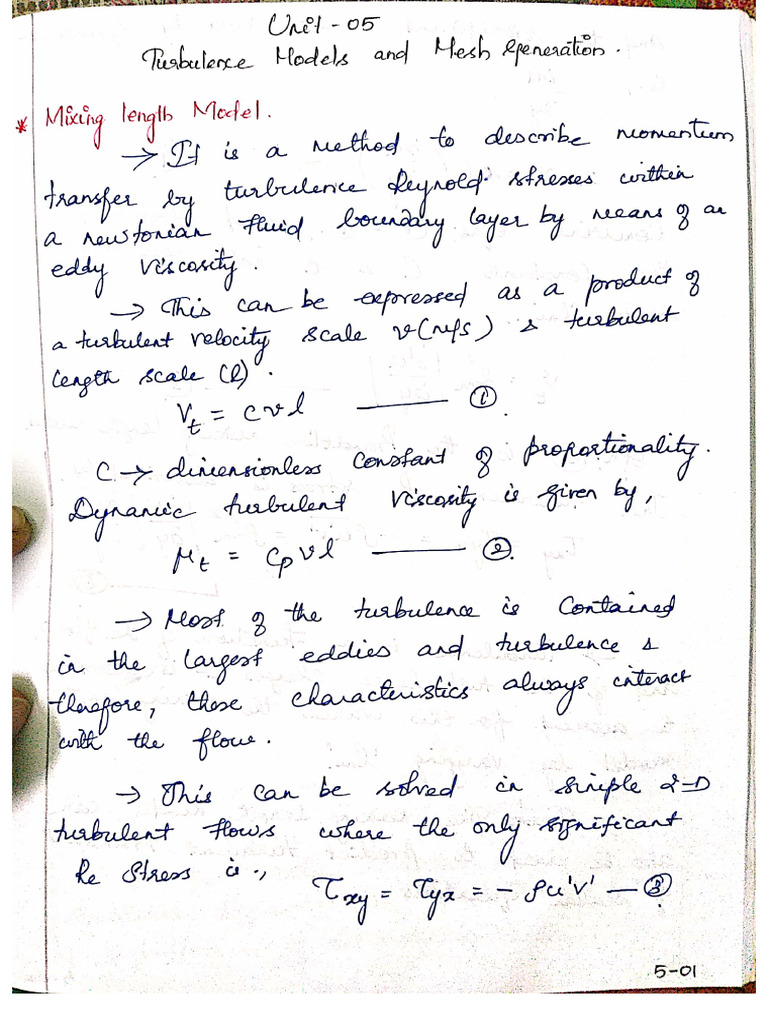 Unit - 05
Turbulence Models and Mesh Generation.
* Mixing length Model.
→ It is a method to describe momentum
transfer by turbulence Reynold stresses within
a newtonian fluid boundary layer by means of an
eddy viscosity.
→ This can be expressed as a product of
a turbulent velocity scale v(m/s) & turbulent
length scale (l).
Vt = c v l —— ①.
C → dimensionless constant of proportionality.
Dynamic turbulent viscosity is given by,
μt = Cρvl —— ②.
→ Most of the turbulence is contained
in the largest eddies and turbulence &
therefore, these characteristics always interact
with the flow.
→ This can be solved in simple 2-D
turbulent flows where the only significant
Re Stress is.,
τxy = τyx = - ρu'v' — ③.
5-01